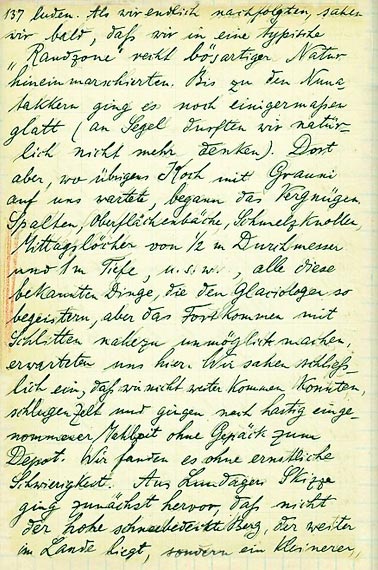 137 luden. Als wir endlich nachfolgten, sahen
wir bald, daß wir in eine typische
„Randzone" recht bösartiger Natur
hineinmarschierten. Bis zu den Nuna-
takkern ging es noch einigermaßen
glatt (an Segel durften wir natür-
lich nicht mehr denken). Dort
aber, wo übrigens Koch mit Grauni
auf uns wartete, begann das Vergnügen.
Spalten, Oberflächenbäche, Schmelzknollen,
Mittagslöcher von 1/2 m Durchmesser
und 1m Tiefe, u.s.w., alle diese
bekannten Dinge, die den Glaciologen so
begeistern, aber das Fortkommen mit
Schlitten nahezu unmöglich machen,
erwarteten uns hier. Wir sahen schließ-
lich ein, daß wir nicht weiter kommen konnten,
schlugen Zelt und gingen nach hastig einge-
nommener Mahlzeit ohne Gepäck zum
Depot. Wir fanden es ohne ernstliche
Schwierigkeit. Aus Lundagers Skizze
ging zunächst hervor, daß nicht
der hohe schneebedeckte Berg, der weiter
im Lande liegt, sondern ein kleinerer,